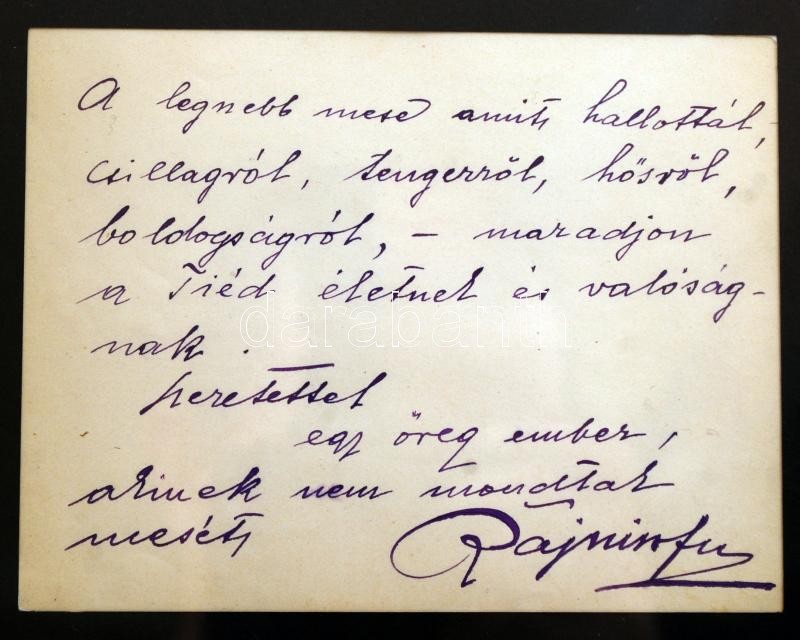 A legszebb mese amit hallottál,
csillagról, tengerről, hősről,
boldogságról, – maradjon
a Tiéd életnek és valóság-
nak.
darabanth
szeretettel
egy öreg ember,
akinek nem mondtak
mesét